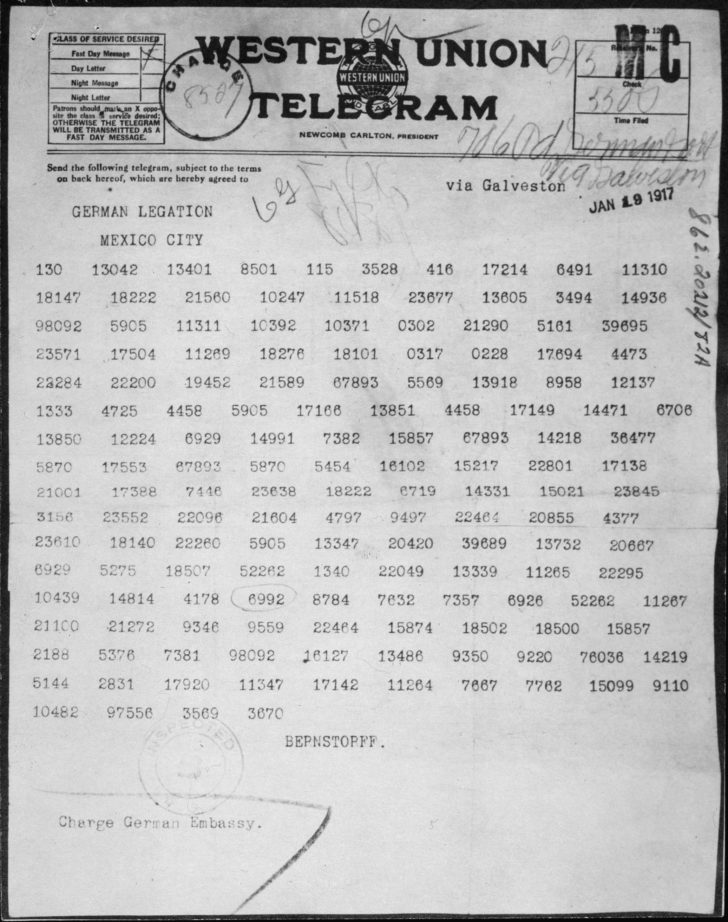 CLASS OF SERVICE DESIRED
Fast Day Message
Day Letter
Night Message
Night Letter
Patrons should mark an X oppo-
site the class of service desired;
OTHERWISE THE TELEGRAM
WILL BE TRANSMITTED AS A
FAST DAY MESSAGE.
CHARGE
WESTERN UNION
WESTERN UNION
TELEGRAM
NEWCOMB CARLTON, PRESIDENT
Receiver's No.
Check
Time Filed
Send the following telegram, subject to the terms
on back hereof, which are hereby agreed to
via Galveston
JAN 19 1917
GERMAN LEGATION
MEXICO CITY
130 13042 13401 8501 115 3528 416 17214 6491 11310
18147 18222 21560 10247 11518 23677 13605 3494 14936
98092 5905 11311 10392 10371 0302 21290 5161 39695
23571 17504 11269 18276 18101 0317 0228 17694 4473
22284 22200 19452 21589 67893 5569 13918 8958 12137
1333 4725 4458 5905 17166 13851 4458 17149 14471 6706
13850 12224 6929 14991 7382 15857 67893 14218 36477
5870 17553 67893 5870 5454 16102 15217 22801 17138
21001 17388 7446 23638 18222 6719 14331 15021 23845
3156 23552 22096 21604 4797 9497 22464 20855 4377
23610 18140 22260 5905 13347 20420 39689 13732 20667
6929 5275 18507 52262 1340 22049 13339 11265 22295
10439 14814 4178 6992 8784 7632 7357 6926 52262 11267
21100 21272 9346 9559 22464 15874 18502 18500 15857
2188 5376 7381 98092 16127 13486 9350 9220 76036 14219
5144 2831 17920 11347 17142 11264 7667 7762 15099 9110
10482 97556 3569 3670
BERNSTORFF.
INSPECTED
Charge German Embassy.